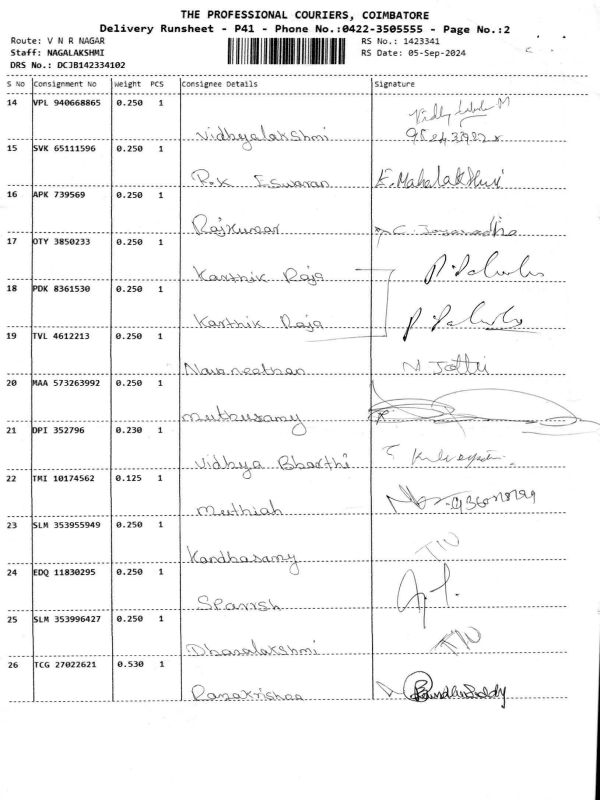 THE PROFESSIONAL COURIERS, COIMBATORE
Delivery Runsheet - P41 - Phone No.:0422-3505555 - Page No.:2
Route: V N R NAGAR
RS No.: 1423341
Staff: NAGALAKSHMI
RS Date: 05-Sep-2024
DRS No.: DCJB142334102
S No Consignment No Weight PCS Consignee Details Signature
14 VPL 940668865 0.250 1
Vidhyalakshmi
15 SVK 65111596 0.250 1
P.K Eswaran E.Mahalakshmi
16 APK 739569 0.250 1
Rajkumar
17 OTY 3850233 0.250 1
Karthik Raja
18 PDK 8361530 0.250 1
Karthik Raja
19 TVL 4612213 0.250 1
Navaneethan N Jothi
20 MAA 573263992 0.250 1
Muthusamy
21 DPI 352796 0.230 1
Vidhya Bharthi
22 TMI 10174562 0.125 1
Muthiah
23 SLM 353955949 0.250 1
Kandhasamy
24 EDQ 11830295 0.250 1
Sparish
25 SLM 353996427 0.250 1
Dhanalakshmi
26 TCG 27022621 0.530 1
Ramakrishna